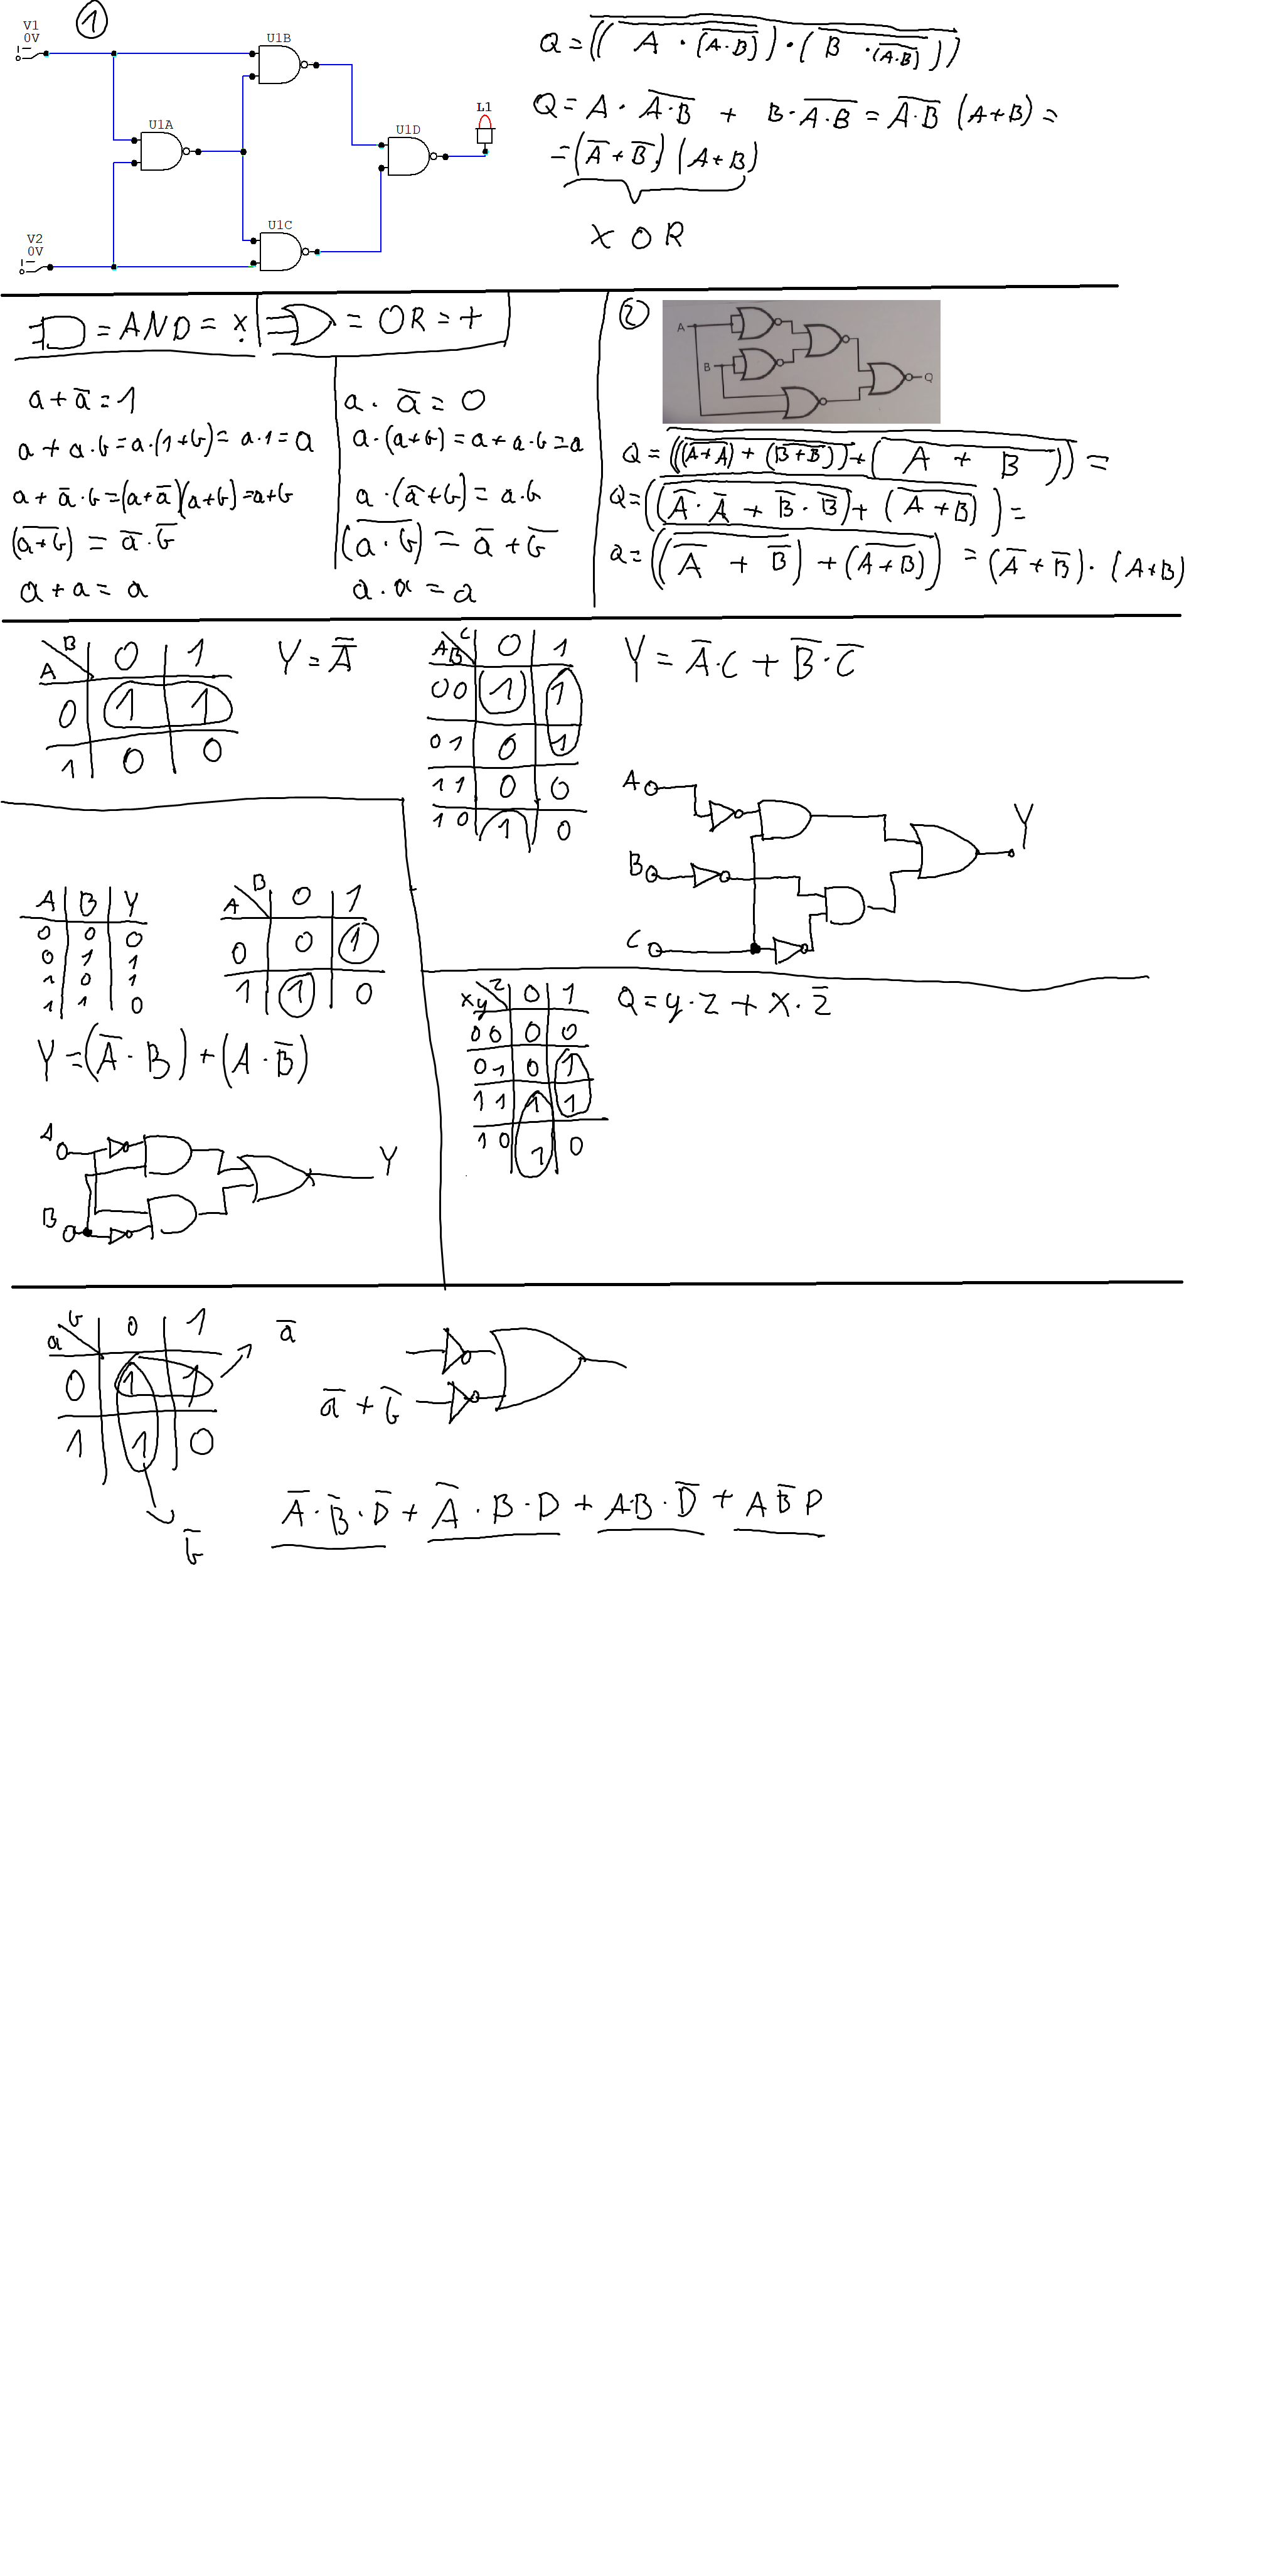 ①
V1
0V
U1B
U1A
U1D
L1
U1C
V2
0V
Q = \overline{(\overline{(A · \overline{(A·B)})} · \overline{(B · \overline{(A·B)})})}
Q = A · \overline{A·B} + B · \overline{A·B} = \overline{A·B} (A+B) =
= (\overline{A} + \overline{B}) (A+B)
XOR
= AND = ×·
= OR = +
a + \overline{a} = 1
a + a·b = a·(1+b) = a·1 = a
a + \overline{a}·b = (a+\overline{a})(a+b) = a+b
(\overline{a+b}) = \overline{a}·\overline{b}
a + a = a
a · \overline{a} = 0
a·(a+b) = a + a·b = a
a·(\overline{a}+b) = a·b
(\overline{a·b}) = \overline{a} + \overline{b}
a · a = a
②
A
B
Q
Q = \overline{(\overline{(\overline{(A+A)} + \overline{(B+B)})} + \overline{(A + B)})} =
Q = \overline{(\overline{(\overline{A}·\overline{A} + \overline{B}·\overline{B})} + (\overline{A+B}))} =
Q = \overline{(\overline{(\overline{A} + \overline{B})} + (\overline{A+B}))} = (\overline{A}+\overline{B}) · (A+B)
A\B 0 1
0 1 1
1 0 0
Y = \overline{A}
AB\C 0 1
00 1 1
01 0 1
11 0 0
10 1 0
Y = \overline{A}·C + \overline{B}·\overline{C}
A
B
C
Y
A B Y
0 0 0
0 1 1
1 0 1
1 1 0
A\B 0 1
0 0 1
1 1 0
Y = (\overline{A} · B) + (A · \overline{B})
A
B
Y
xy\z 0 1
00 0 0
01 0 1
11 1 1
10 1 0
Q = y·z + x·\overline{z}
a\b 0 1
0 1 1
1 1 0
\overline{a}
\overline{b}
\overline{a} + \overline{b}
\overline{A}·\overline{B}·\overline{D} + \overline{A}·B·D + A·B·\overline{D} + A\overline{B}D